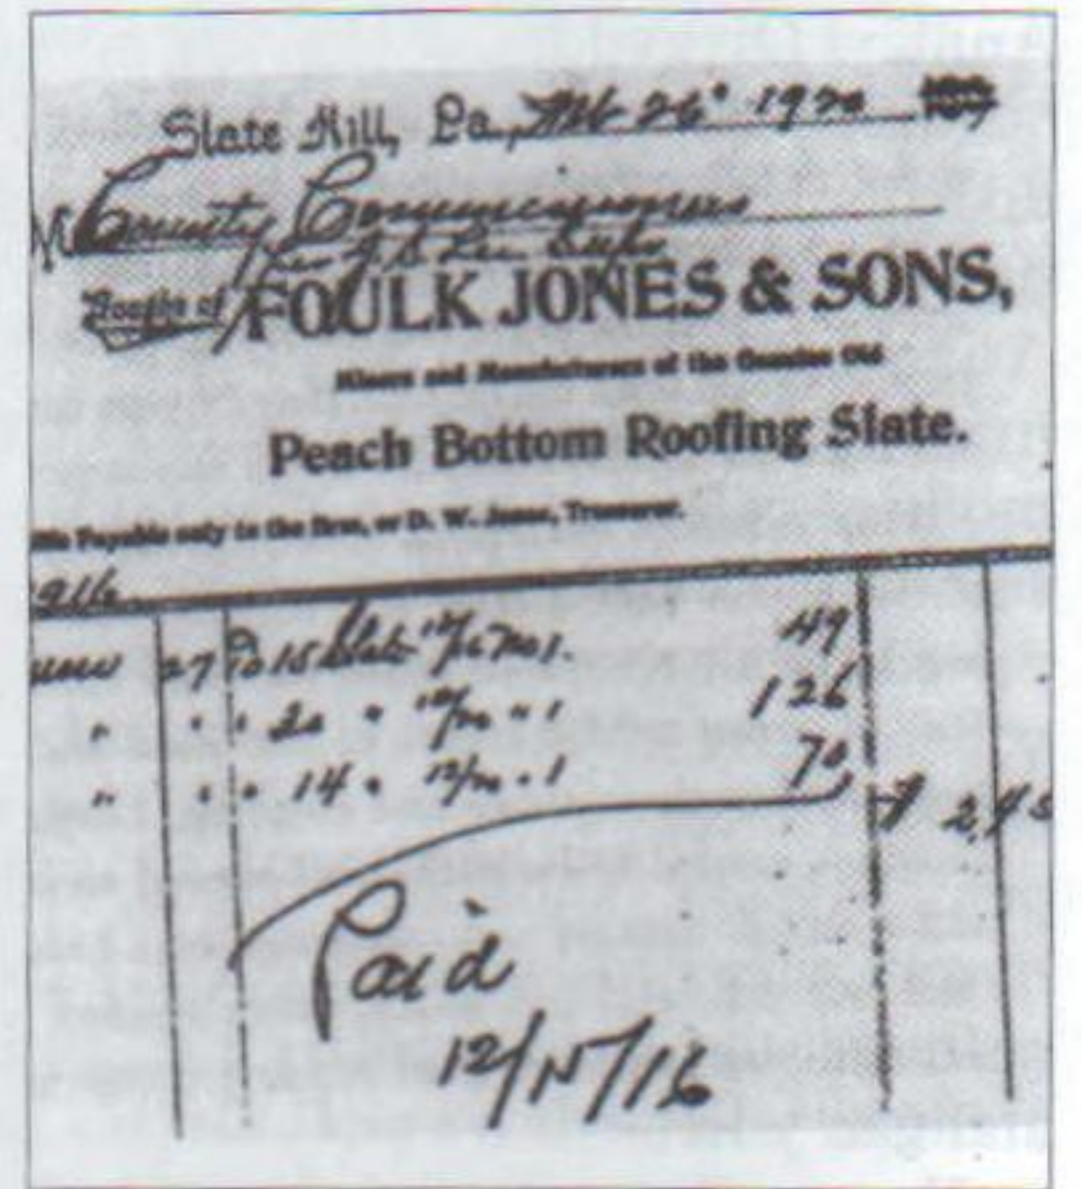 Slate Hill, Pa., Feb 26" 1920
M County Commissioners
Bought of FOULK JONES & SONS,
Miners and Manufacturers of the Genuine Old
Peach Bottom Roofing Slate.
Payable only to the firm, or D. W. Jones, Treasurer.
916
27 To 15 Slate 12/16 No 1. 49
" " " 20 " " 1 126
" " " 14 " 12/20 " 1 70
$ 245
Paid
12/15/16